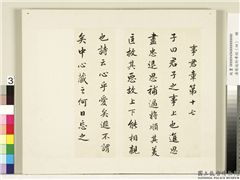 事君章第十七
子曰君子之事上也進思
盡忠退思補過將順其美
匡救其惡故上下能相親
也詩云心乎愛矣遐不謂
矣中心藏之何日忘之